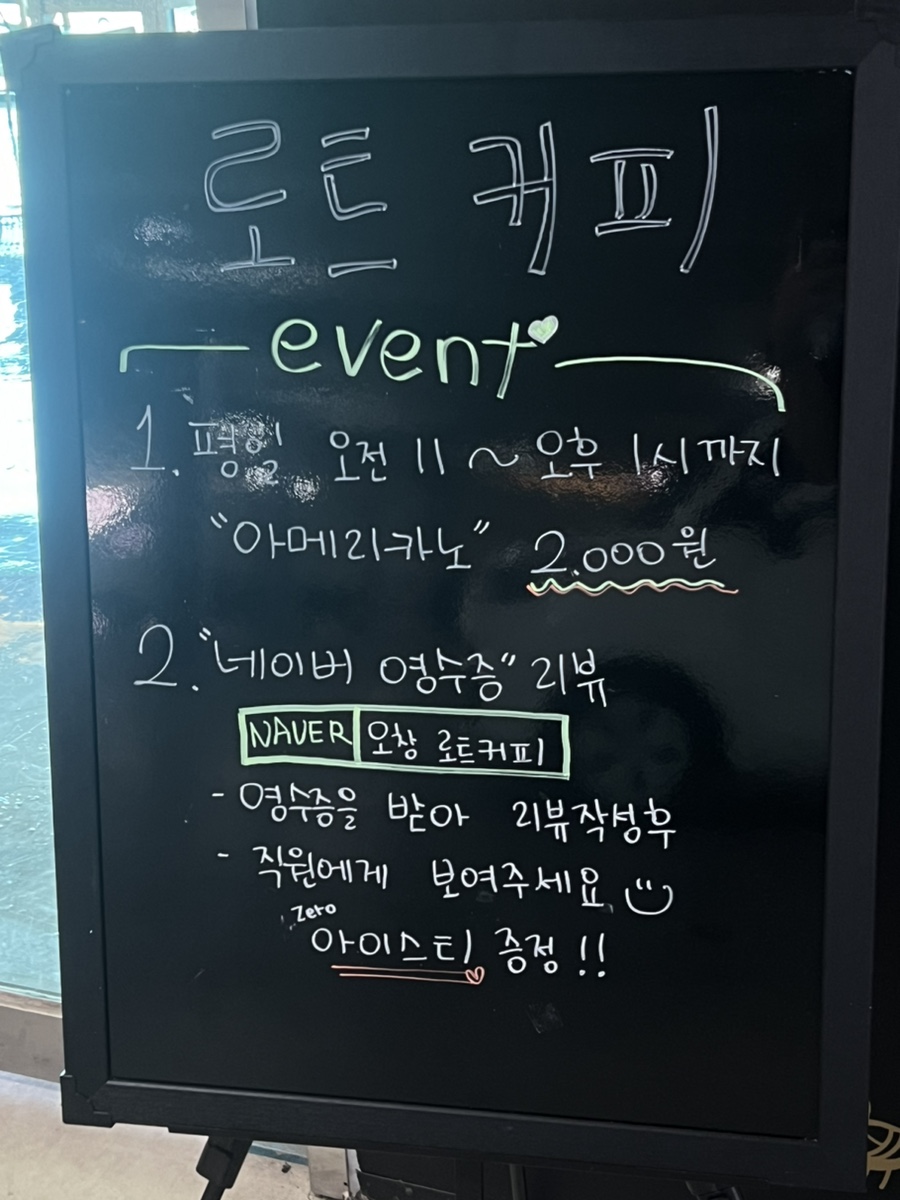 로트 커피
event
1. 평일 오전 11 ~ 오후 1시 까지
"아메리카노" 2.000원
2. "네이버 영수증" 리뷰
NAVER 오창 로트커피
- 영수증을 받아 리뷰작성후
- 직원에게 보여주세요
zero
아이스티 증정 !!